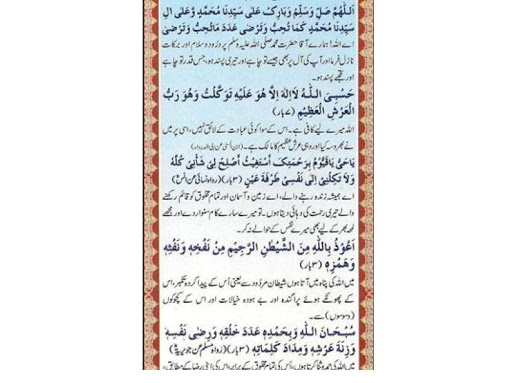 اَللّٰهُمَّ صَلِّ وَسَلِّمْ وَبَارِكْ عَلٰى سَيِّدِنَا مُحَمَّدٍ وَّعَلٰى اٰلِ
سَيِّدِنَا مُحَمَّدٍ كَمَا تُحِبُّ وَتَرْضٰى عَدَدَ مَا تُحِبُّ وَتَرْضٰى
اے اللہ! ہمارے آقا حضرت محمد صلی اللہ علیہ وسلم پر درود و سلام اور برکات
نازل فرما اور آپ کی آل پر بھی جیسے تو چاہے اور تیری پسند ہو، جس قدر تو چاہے
اور تجھے پسند ہو۔
حَسْبِیَ اللّٰهُ لَا اِلٰهَ اِلَّا هُوَ عَلَيْهِ تَوَكَّلْتُ وَهُوَ رَبُّ
الْعَرْشِ الْعَظِيْمِ (۷ بار)
اللہ میرے لیے کافی ہے۔ اس کے سوا کوئی عبادت کے لائق نہیں، اسی پر میں
نے بھروسہ کیا اور وہی عرش عظیم کا مالک ہے۔
يَا حَیُّ يَا قَيُّوْمُ بِرَحْمَتِكَ اَسْتَغِيْثُ اَصْلِحْ لِیْ شَأْنِیْ كُلَّهٗ
وَلَا تَكِلْنِیْ اِلٰى نَفْسِیْ طَرْفَةَ عَيْنٍ (۳ بار)
اے ہمیشہ زندہ رہنے والے، اے زمین و آسمان اور تمام مخلوق کو قائم رکھنے
والے تیری رحمت کی دہائی دیتا ہوں۔ تو میرے سارے کام سنوار دے اور مجھے
لمحہ بھر کے لیے بھی میرے نفس کے حوالے نہ کر۔
اَعُوْذُ بِاللّٰهِ مِنَ الشَّيْطٰنِ الرَّجِيْمِ مِنْ نَفْخِهٖ وَنَفْثِهٖ
وَهَمْزِهٖ (۳ بار)
میں اللہ کی پناہ میں آتا ہوں شیطان مردود سے یعنی اُس کے پیدا کردہ تکبر، اس
کے پھونکے ہوئے پراگندہ اور بے ہودہ خیالات اور اس کے کچوکوں
(وسوسوں) سے۔
سُبْحَانَ اللّٰهِ وَبِحَمْدِهٖ عَدَدَ خَلْقِهٖ وَرِضٰى نَفْسِهٖ
وَزِنَةَ عَرْشِهٖ وَمِدَادَ كَلِمَاتِهٖ (۳ بار) (رواہ مسلم عن جویریۃ)